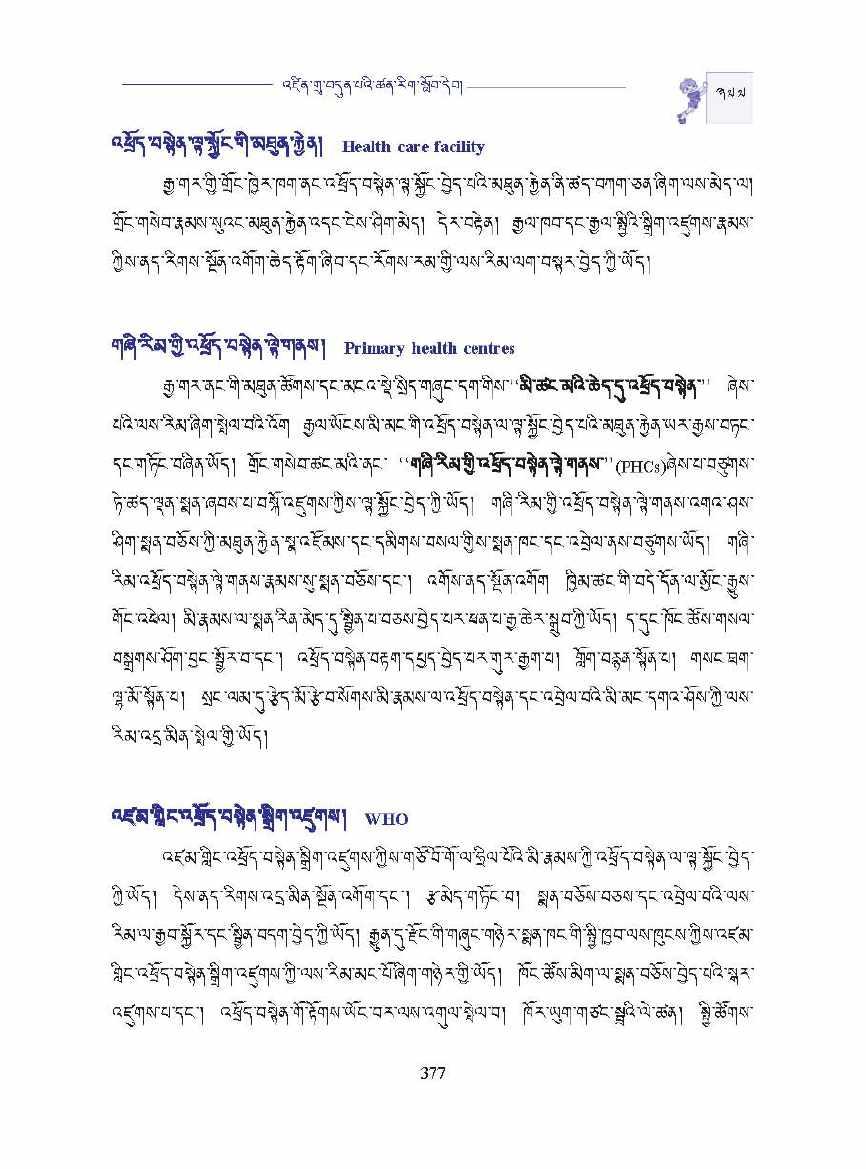 འཛིན་གྲྭ་བདུན་པའི་ཚན་རིག་སློབ་དེབ།
༣༧༧
འཕྲོད་བསྟེན་ལྟ་སྐྱོང་གི་མཐུན་རྐྱེན། Health care facility
རྒྱ་གར་གྱི་གྲོང་ཁྱེར་ཁག་ནང་འཕྲོད་བསྟེན་ལྟ་སྐྱོང་བྱེད་པའི་མཐུན་རྐྱེན་ནི་ཚད་བཀག་ཅན་ཞིག་ལས་མེད་ལ།
གྲོང་གསེབ་རྣམས་སུའང་མཐུན་རྐྱེན་འདང་ངེས་ཤིག་མེད། དེར་བརྟེན། རྒྱལ་ཁབ་དང་རྒྱལ་སྤྱིའི་སྒྲིག་འཛུགས་རྣམས་
ཀྱིས་ནད་རིགས་སྔོན་འགོག་ཆེད་རྟོག་ཞིབ་དང་རོགས་རམ་གྱི་ལས་རིམ་ལག་བསྟར་བྱེད་ཀྱི་ཡོད།
གཞི་རིམ་གྱི་འཕྲོད་བསྟེན་ལྟེ་གནས། Primary health centres
རྒྱ་གར་ནང་གི་མཐུན་ཚོགས་དང་མངའ་སྡེ་སྲིད་གཞུང་དག་གིས་“མི་ཚང་མའི་ཆེད་དུ་འཕྲོད་བསྟེན་” ཞེས་
པའི་ལས་རིམ་ཞིག་སྤེལ་བའི་འོག རྒྱལ་ཡོངས་མི་མང་གི་འཕྲོད་བསྟེན་ལ་ལྟ་སྐྱོང་བྱེད་པའི་མཐུན་རྐྱེན་ཡར་རྒྱས་བཏང་
དང་གཏོང་བཞིན་ཡོད། གྲོང་གསེབ་ཚང་མའི་ནང་ “གཞི་རིམ་གྱི་འཕྲོད་བསྟེན་ལྟེ་གནས་”(PHCs)ཞེས་པ་བཙུགས་
ཏེ་ཚད་ལྡན་སྨན་ཞབས་པ་བསྐོ་འཛུགས་ཀྱིས་ལྟ་སྐྱོང་བྱེད་ཀྱི་ཡོད། གཞི་རིམ་གྱི་འཕྲོད་བསྟེན་ལྟེ་གནས་འགའ་ཤས་
ཤིག་སྨན་བཅོས་ཀྱི་མཐུན་རྐྱེན་སྣ་འཛོམས་དང་དམིགས་བསལ་གྱིས་སྨན་ཁང་དང་འབྲེལ་ནས་བཙུགས་ཡོད། གཞི་
རིམ་འཕྲོད་བསྟེན་ལྟེ་གནས་རྣམས་སུ་སྨན་བཅོས་དང་། འགོས་ནད་སྔོན་འགོག ཁྱིམ་ཚང་གི་བདེ་དོན་ལ་མྱོང་རྒྱུས་
གོང་འཕེལ། མི་རྣམས་ལ་སྨན་རིན་མེད་དུ་སྦྱིན་པ་བཅས་བྱེད་པར་ཕན་པ་རྒྱ་ཆེར་སྒྲུབ་ཀྱི་ཡོད། ད་དུང་ཁོང་ཚོས་གསལ་
བསྒྲགས་ཤོག་བྱང་སྦྱོར་བ་དང་། འཕྲོད་བསྟེན་བརྟག་དཔྱད་བྱེད་པར་གུར་རྒྱག་པ། གློག་བརྙན་སྟོན་པ། གསང་ཐག་
ལྟ་མོ་སྟོན་པ། སྲང་ལམ་དུ་རྩེད་མོ་རྩེ་བ་སོགས་མི་རྣམས་ལ་འཕྲོད་བསྟེན་དང་འབྲེལ་བའི་མི་མང་དགའ་ཤོས་ཀྱི་ལས་
རིམ་འདྲ་མིན་སྤེལ་གྱི་ཡོད།
འཛམ་གླིང་འཕྲོད་བསྟེན་སྒྲིག་འཛུགས། WHO
འཛམ་གླིང་འཕྲོད་བསྟེན་སྒྲིག་འཛུགས་ཀྱིས་གཙོ་བོ་གོ་ལ་ཧྲིལ་པོའི་མི་རྣམས་ཀྱི་འཕྲོད་བསྟེན་ལ་ལྟ་སྐྱོང་བྱེད་
ཀྱི་ཡོད། དེས་ནད་རིགས་འདྲ་མིན་སྔོན་འགོག་དང་། རྩ་མེད་གཏོང་བ། སྨན་བཅོས་བཅས་དང་འབྲེལ་བའི་ལས་
རིམ་ལ་རྒྱབ་སྐྱོར་དང་སྦྱིན་བདག་བྱེད་ཀྱི་ཡོད། རྒྱུན་དུ་རྫོང་གི་གཞུང་གཉེར་སྨན་ཁང་གི་སྤྱི་ཁྱབ་ལས་ཁུངས་ཀྱིས་འཛམ་
གླིང་འཕྲོད་བསྟེན་སྒྲིག་འཛུགས་ཀྱི་ལས་རིམ་མང་པོ་ཞིག་གཉེར་གྱི་ཡོད། ཁོང་ཚོས་མིག་ལ་སྨན་བཅོས་བྱེད་པའི་སྒར་
འཛུགས་པ་དང་། འཕྲོད་བསྟེན་གོ་རྟོགས་ཡོང་བར་ལས་འགུལ་སྤེལ་བ། ཁོར་ཡུག་གཙང་སྦྲའི་ལེ་ཚན། སྤྱི་ཚོགས་
377